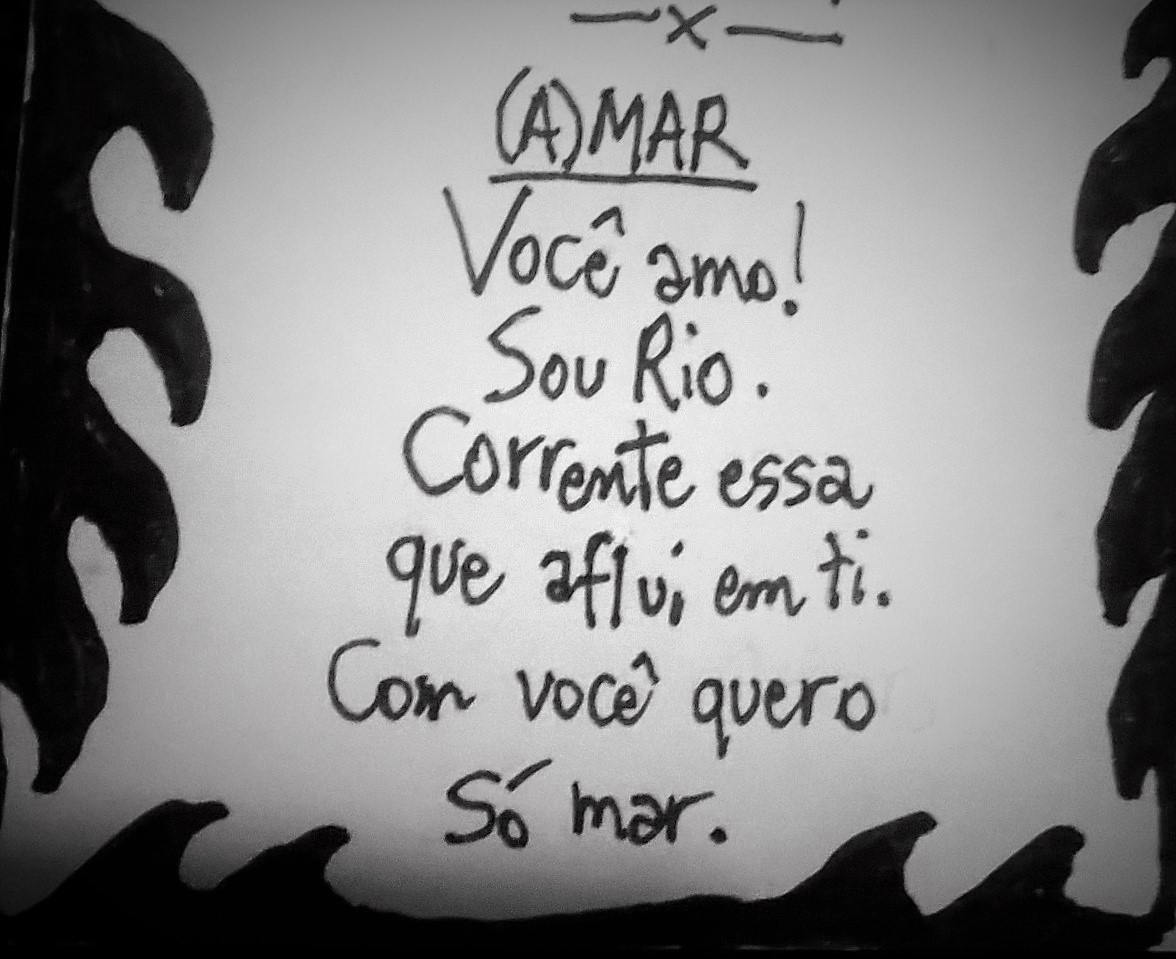 —x—
(A)MAR
Você amo!
Sou Rio.
Corrente essa
que aflui em ti.
Com você quero
Só mar.